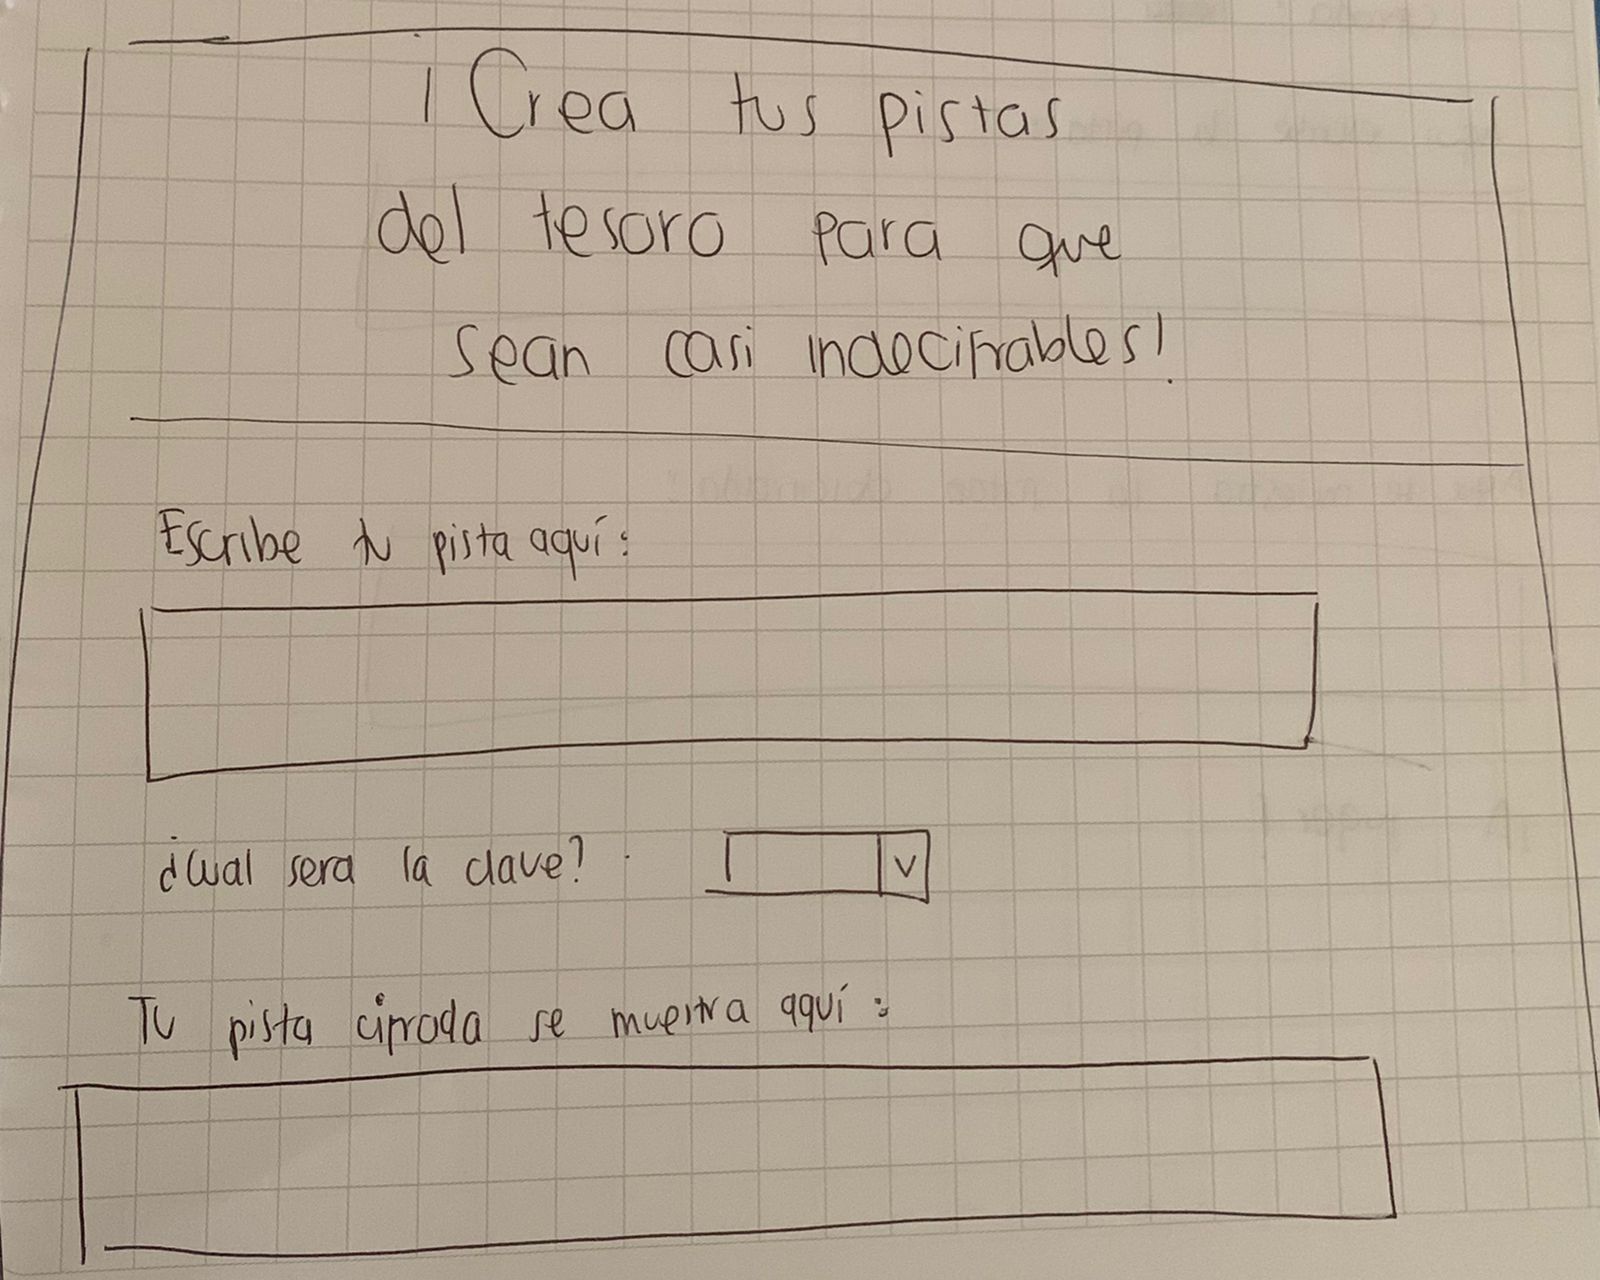 ¡Crea tus pistas
del tesoro para que
sean casi indecifrables!
Escribe tu pista aquí:
¿Cual sera la clave?
Tu pista cifrada se muestra aquí: